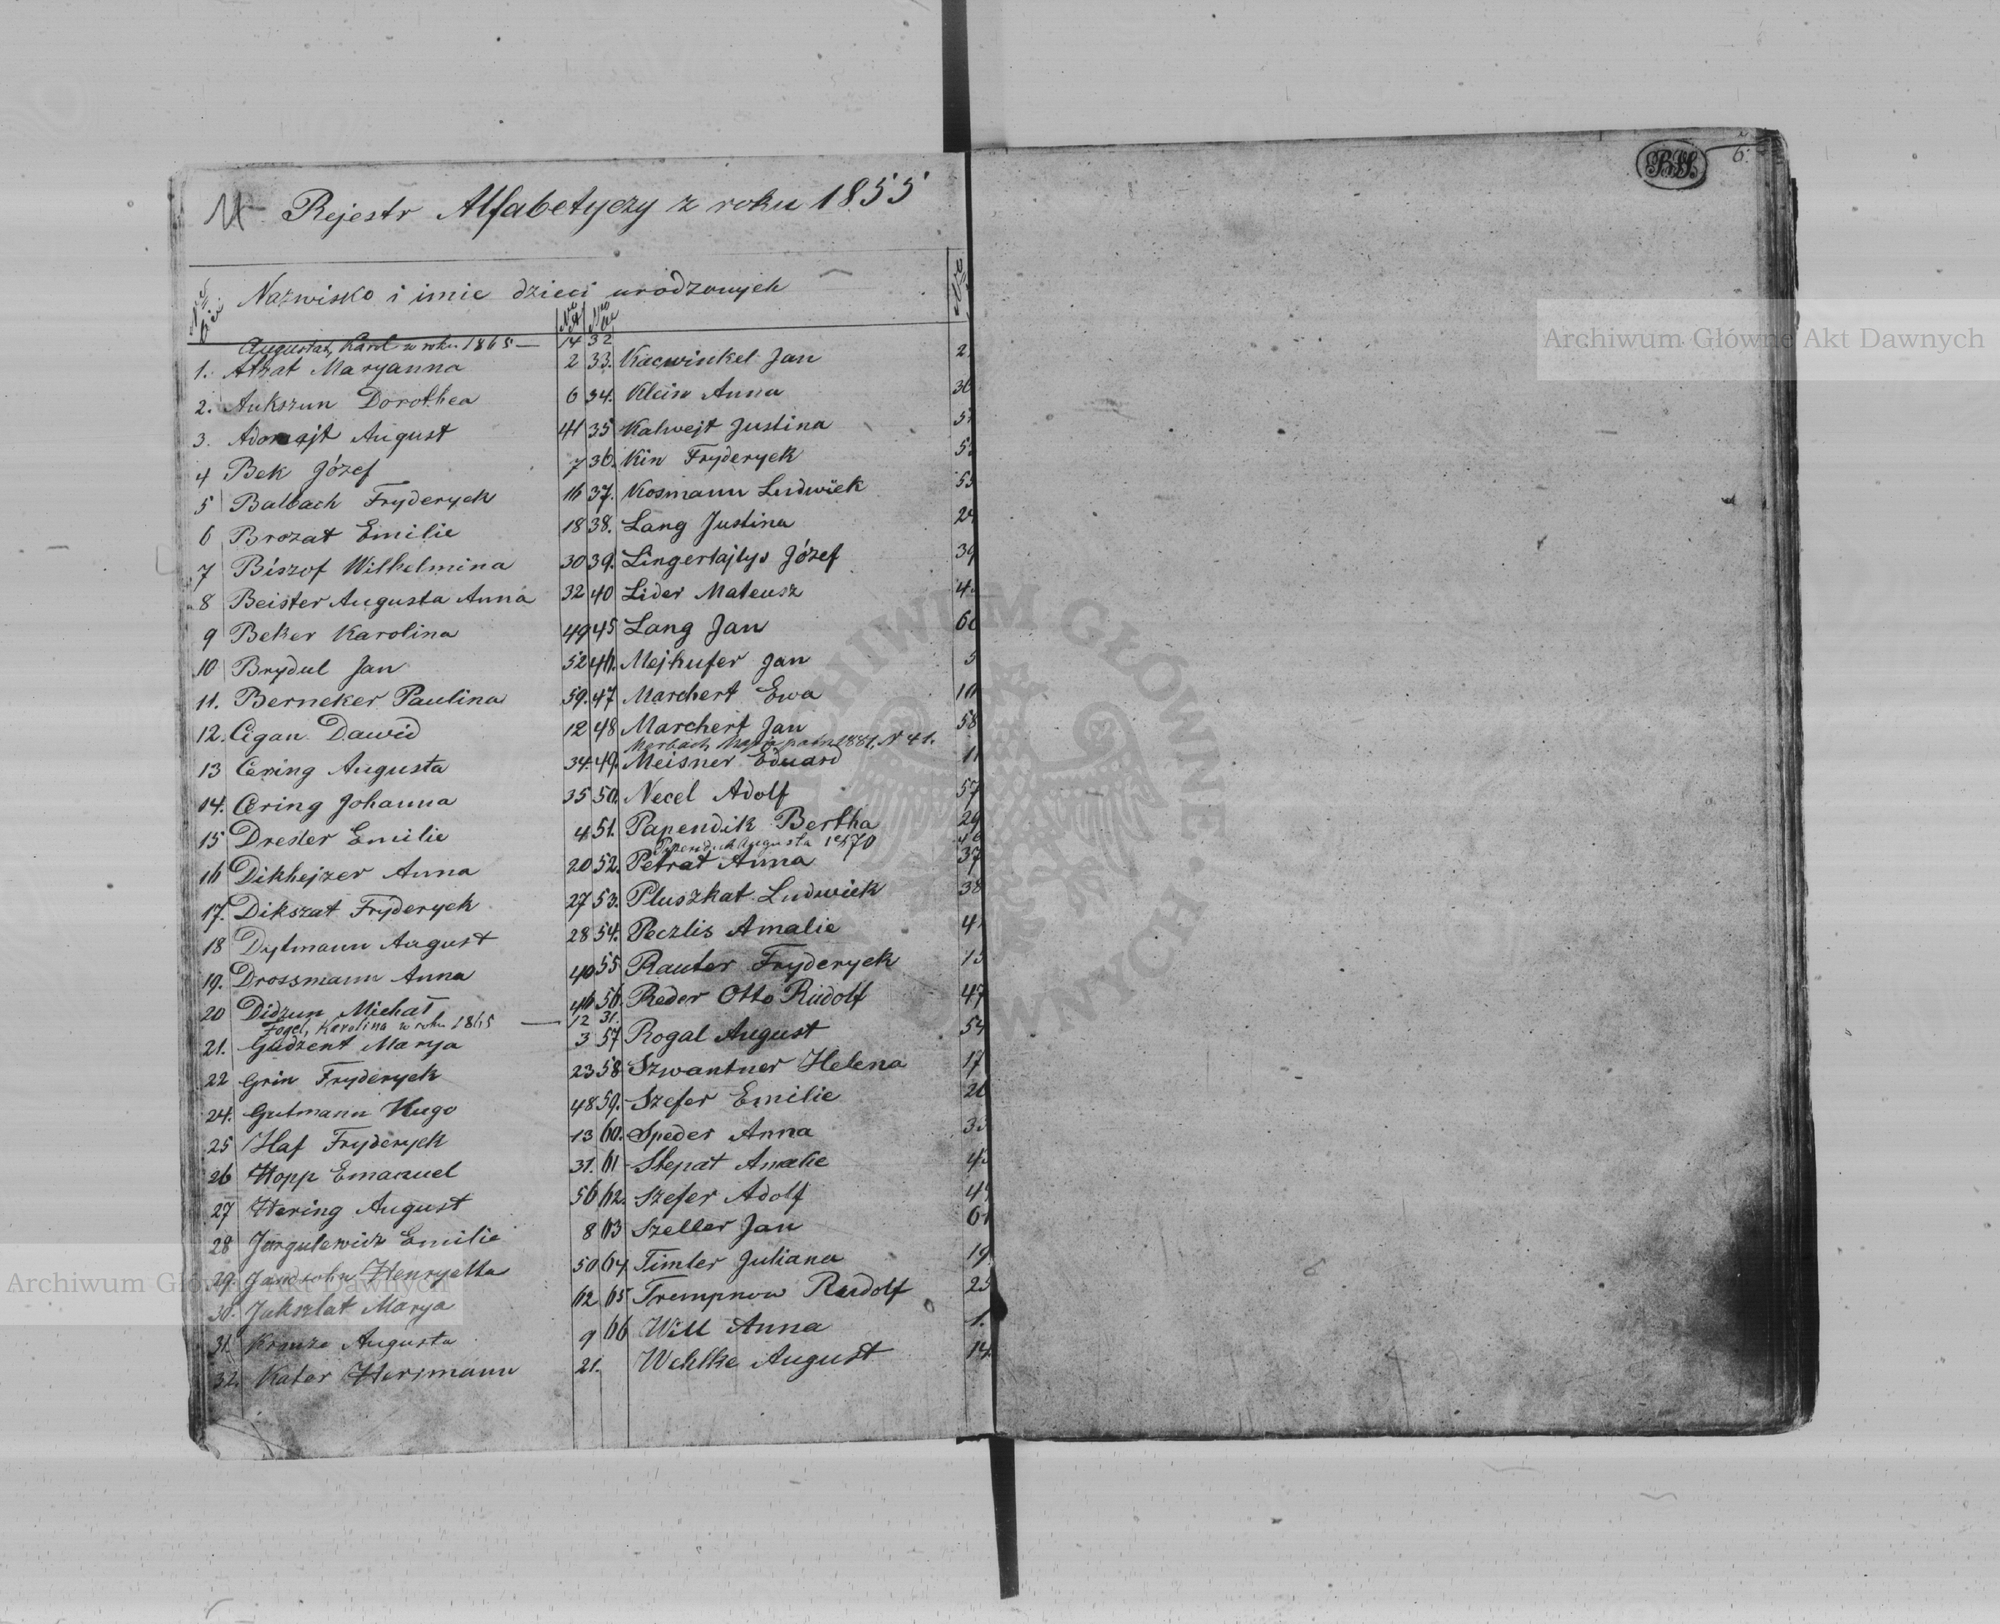 Rejestr Alfabetyczy z roku 1855
Nazwisko i imie dzieci urodzonych
Augustat, Karol w roku 1865 — 14
1. Atzat Maryanna 2
2. Aukszun Dorothea 6
3. Adomajt August 41
4 Bek Józef 7
5 Balbach Fryderyck 16
6 Brozat Emilie 18
7 Biszof Wilhelmina 30
8 Beister Augusta Anna 32
9 Beker Karolina 49
10 Brydul Jan 52
11. Berneker Paulina 59.
12. Cigan Dawid 12
13 Cering Augusta 34.
14. Cering Johanna 35
15 Dresler Emilie 4
16 Dikhejzer Anna 20
17. Dikszat Fryderyck 27
18 Dytmann August 28
19. Drossmann Anna 40
20 Didzun Michał 46
Fogel, Karolina w roku 1865 — 12
21. Gudzent Marya 3
22 Grin Fryderyck 23
24. Gutmann Hugo 48
25 Haf Fryderyck 13
26 Hopp Emanuel 31.
27 Hering August 56
28 Jurgulewicz Emilie 8
29. Jandsohn Henryetta 50
30. Jakszlat Marya 62
31 Krauze Augusta 9
32. Kater Herrmann 21.
32
33. Kacwinkel Jan 2
34. Klein Anna 36
35 Kalwejt Justina 5
36. Kin Fryderyck 5
37. Kosmann Ludwick 55
38. Lang Justina 24
39. Lingertajtys Józef 39
40 Lider Mateusz 4
45 Lang Jan 60
46. Mejkufer Jan 5
47 Marchert Ewa 10
48 Marchert Jan 58
Marbach 1881, N 41.
49. Meisner Eduard 11
50. Necel Adolf 57
51. Papendik Bertha 29
Papendick Augusta 1870
52. Petrat Anna 37
53. Pluszkat Ludwick 38
54. Peczlis Amalie 4
55 Rauter Fryderyck 13
56. Reder Otto Rudolf 47
31.
57 Rogal August 54
58 Szwantner Helena 17
59. Szefer Emilie 26
60. Speder Anna 33
61 Stepat Amalie 4
62. Szefer Adolf 4
63 Szeller Jan 61
64. Timler Juliana 19
65 Trempnow Rudolf 25
66 Will Anna 1.
Wehlke August 14
6.
Archiwum Główne Akt Dawnych
Archiwum Główne Akt Dawnych